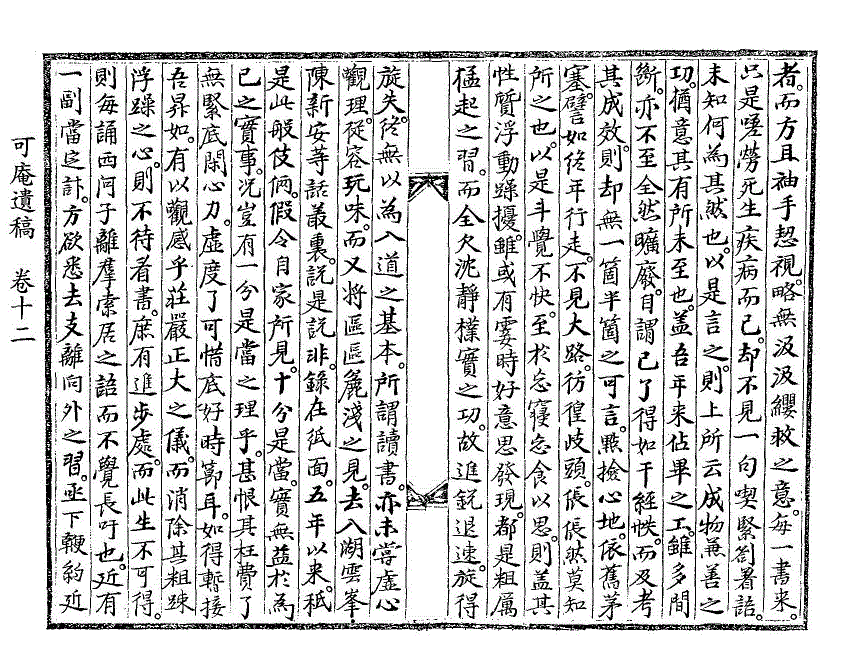 者。而方且袖手恝視。略無汲汲纓救之意。每一書來。
只是嗟勞死生疾病而已。却不見一句喫緊劄著語。
未知何為其然也。以是言之。則上所云成物兼善之
功。猶意其有所未至也。盖吾年來佔畢之工。雖多間
斷。亦不至全然曠廢。自謂已了得如干經帙。而及考
其成效。則却無一箇半箇之可言。點撿心地。依舊茅
塞。譬如終年行走。不見大路。彷徨歧頭。倀倀然莫知
所之也。以是斗覺不快。至於忘寢忘食以思。則盖其
性質浮動躁擾。雖或有霎時好意思發現。都是粗厲
猛起之習。而全欠沈靜樸實之功。故進銳退速。旋得
旋失。終無以為入道之基本。所謂讀書。亦未嘗虛心
觀理。從容玩味。而又將區區麁淺之見。去入湖雲峯
陳新安等話叢裏。說是說非。錄在紙面。五年以來。秪
是此般伎倆。假令自家所見。十分是當。實無益於為
已之實事。况豈有一分是當之理乎。甚恨其枉費了
無緊底閑心力。虛度了可惜底好時節耳。如得暫接
吾昇如。有以觀感乎莊嚴正大之儀。而消除其粗踈
浮躁之心。則不待看書。庶有進步處。而此生不可得。
則每誦西河子離羣索居之語而不覺長吁也。近有
一副當定計。方欲悉去支離向外之習。亟下鞭約近
可庵遺稿 卷十二